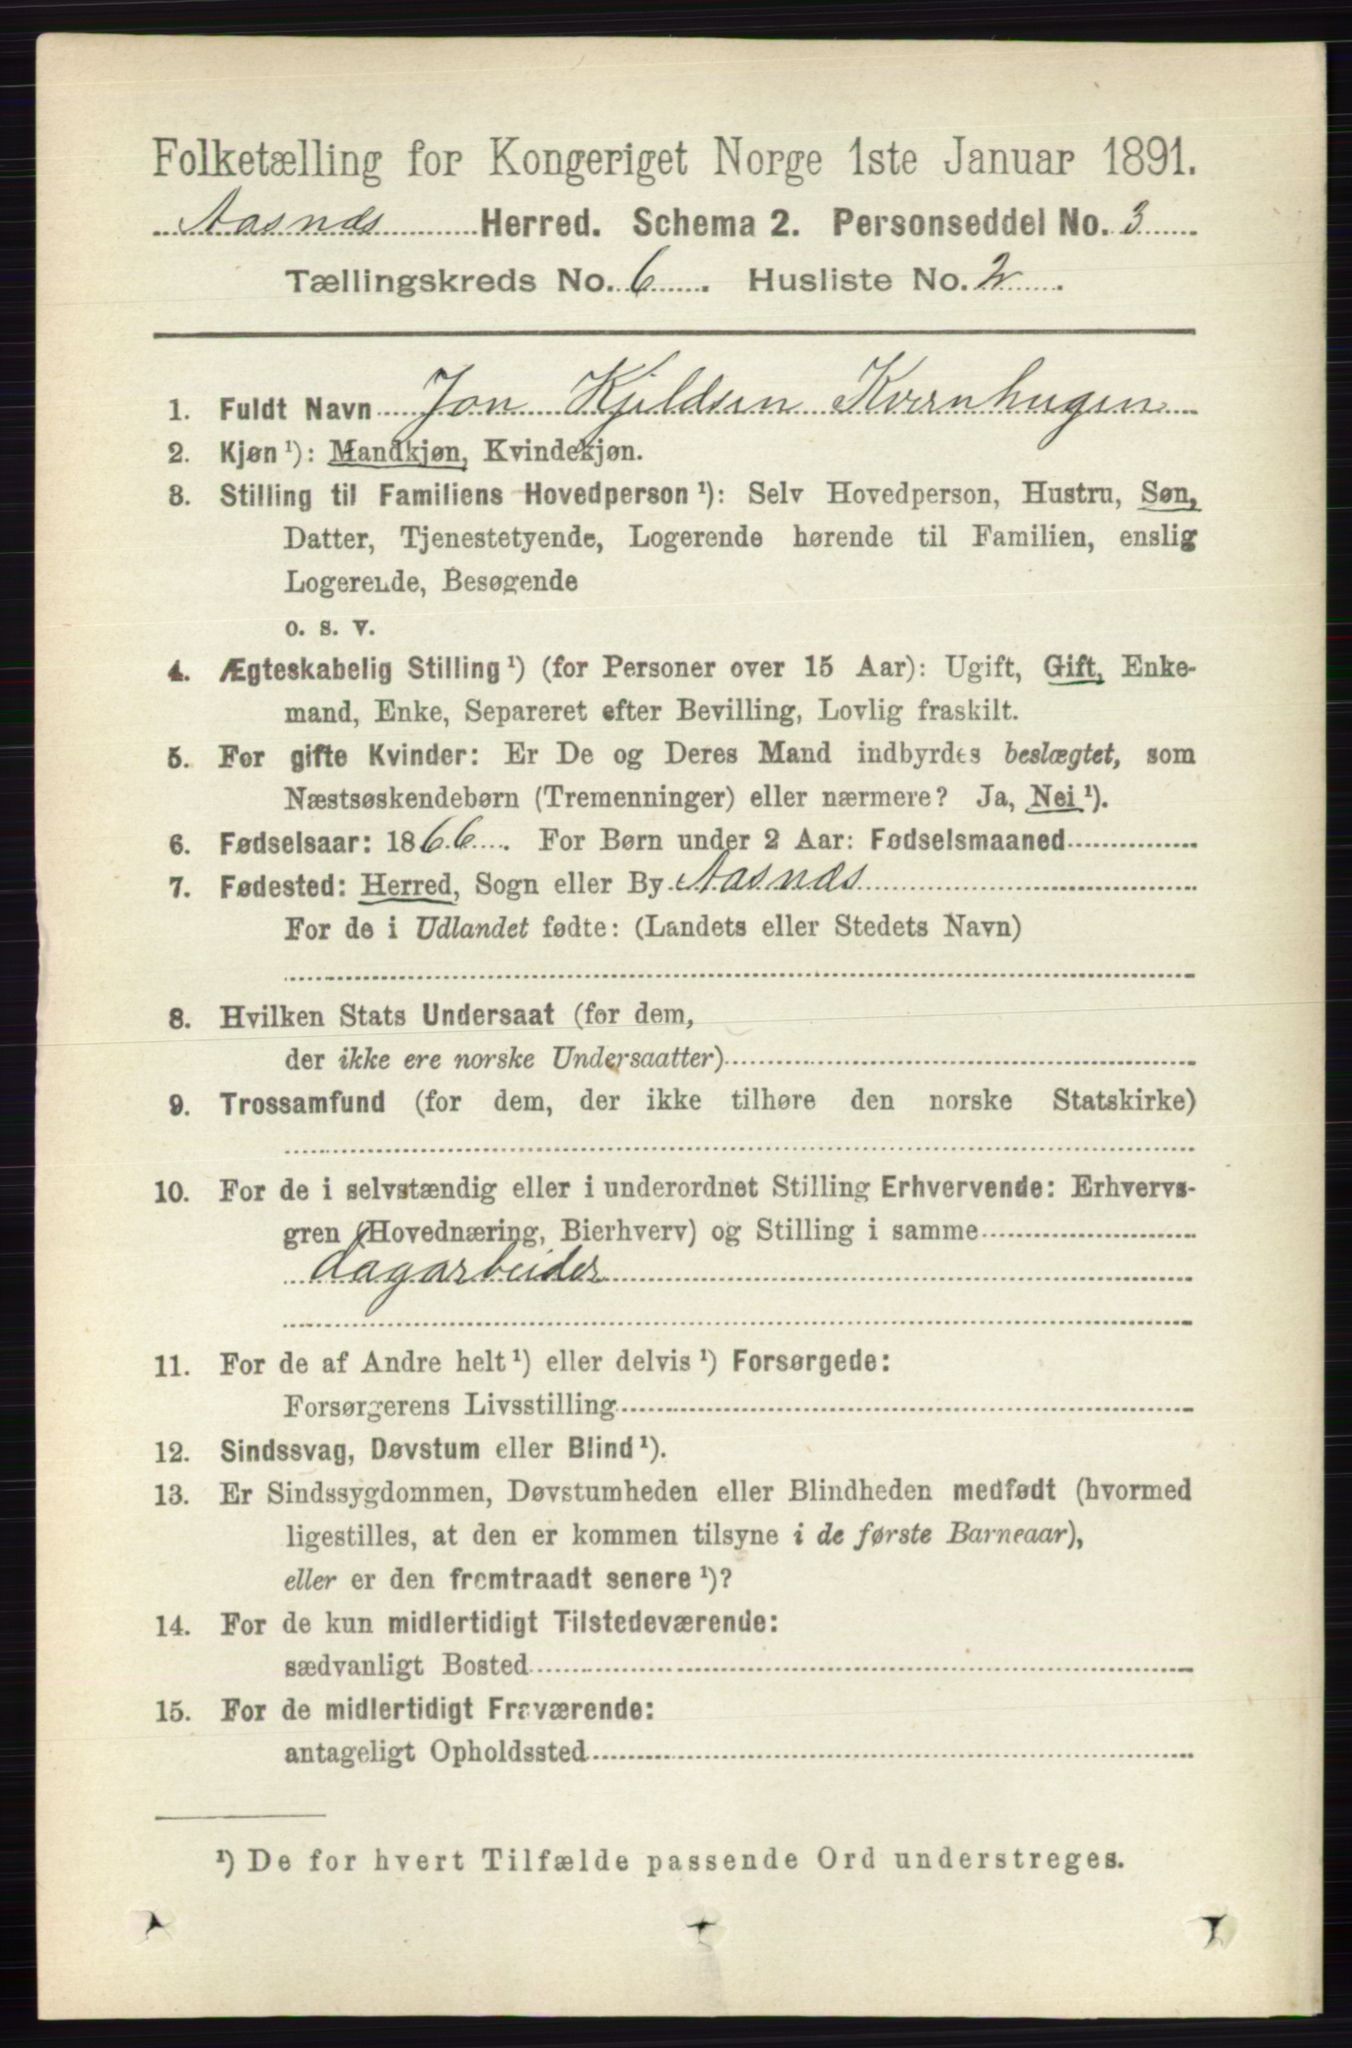 Folketælling for Kongeriget Norge 1ste Januar 1891.
Aasnæs Herred. Schema 2. Personseddel No. 3
Tællingskreds No. 6. Husliste No. 2.
1. Fuldt Navn Jon Kjeldsen Kvernhugen
2. Kjøn ¹): Mandkjøn, Kvindekjøn.
3. Stilling til Familiens Hovedperson ¹): Selv Hovedperson, Hustru, Søn,
Datter, Tjenestetyende, Logerende hørende til Familien, enslig
Logerende, Besøgende
o. s. v.
4. Ægteskabelig Stilling ¹) (for Personer over 15 Aar): Ugift, Gift, Enke-
mand, Enke, Separeret efter Bevilling, Lovlig fraskilt.
5. For gifte Kvinder: Er De og Deres Mand indbyrdes beslægtet, som
Næstsøskendebørn (Tremenninger) eller nærmere? Ja, Nei ¹).
6. Fødselsaar: 1866. For Børn under 2 Aar: Fødselsmaaned
7. Fødested: Herred, Sogn eller By Aasnæs
For de i Udlandet fødte: (Landets eller Stedets Navn)
8. Hvilken Stats Undersaat (for dem,
der ikke ere norske Undersaatter)
9. Trossamfund (for dem, der ikke tilhøre den norske Statskirke)
10. For de i selvstændig eller i underordnet Stilling Erhvervende: Erhvervs-
gren (Hovednæring, Bierhverv) og Stilling i samme
dagarbeider
11. For de af Andre helt ¹) eller delvis ¹) Forsørgede:
Forsørgerens Livsstilling
12. Sindssvag, Døvstum eller Blind ¹).
13. Er Sindssygdommen, Døvstumheden eller Blindheden medfødt (hvormed
ligestilles, at den er kommen tilsyne i de første Barneaar),
eller er den fremtraadt senere ¹)?
14. For de kun midlertidigt Tilstedeværende:
sædvanligt Bosted
15. For de midlertidigt Fraværende:
antageligt Opholdssted
¹) De for hvert Tilfælde passende Ord understreges.